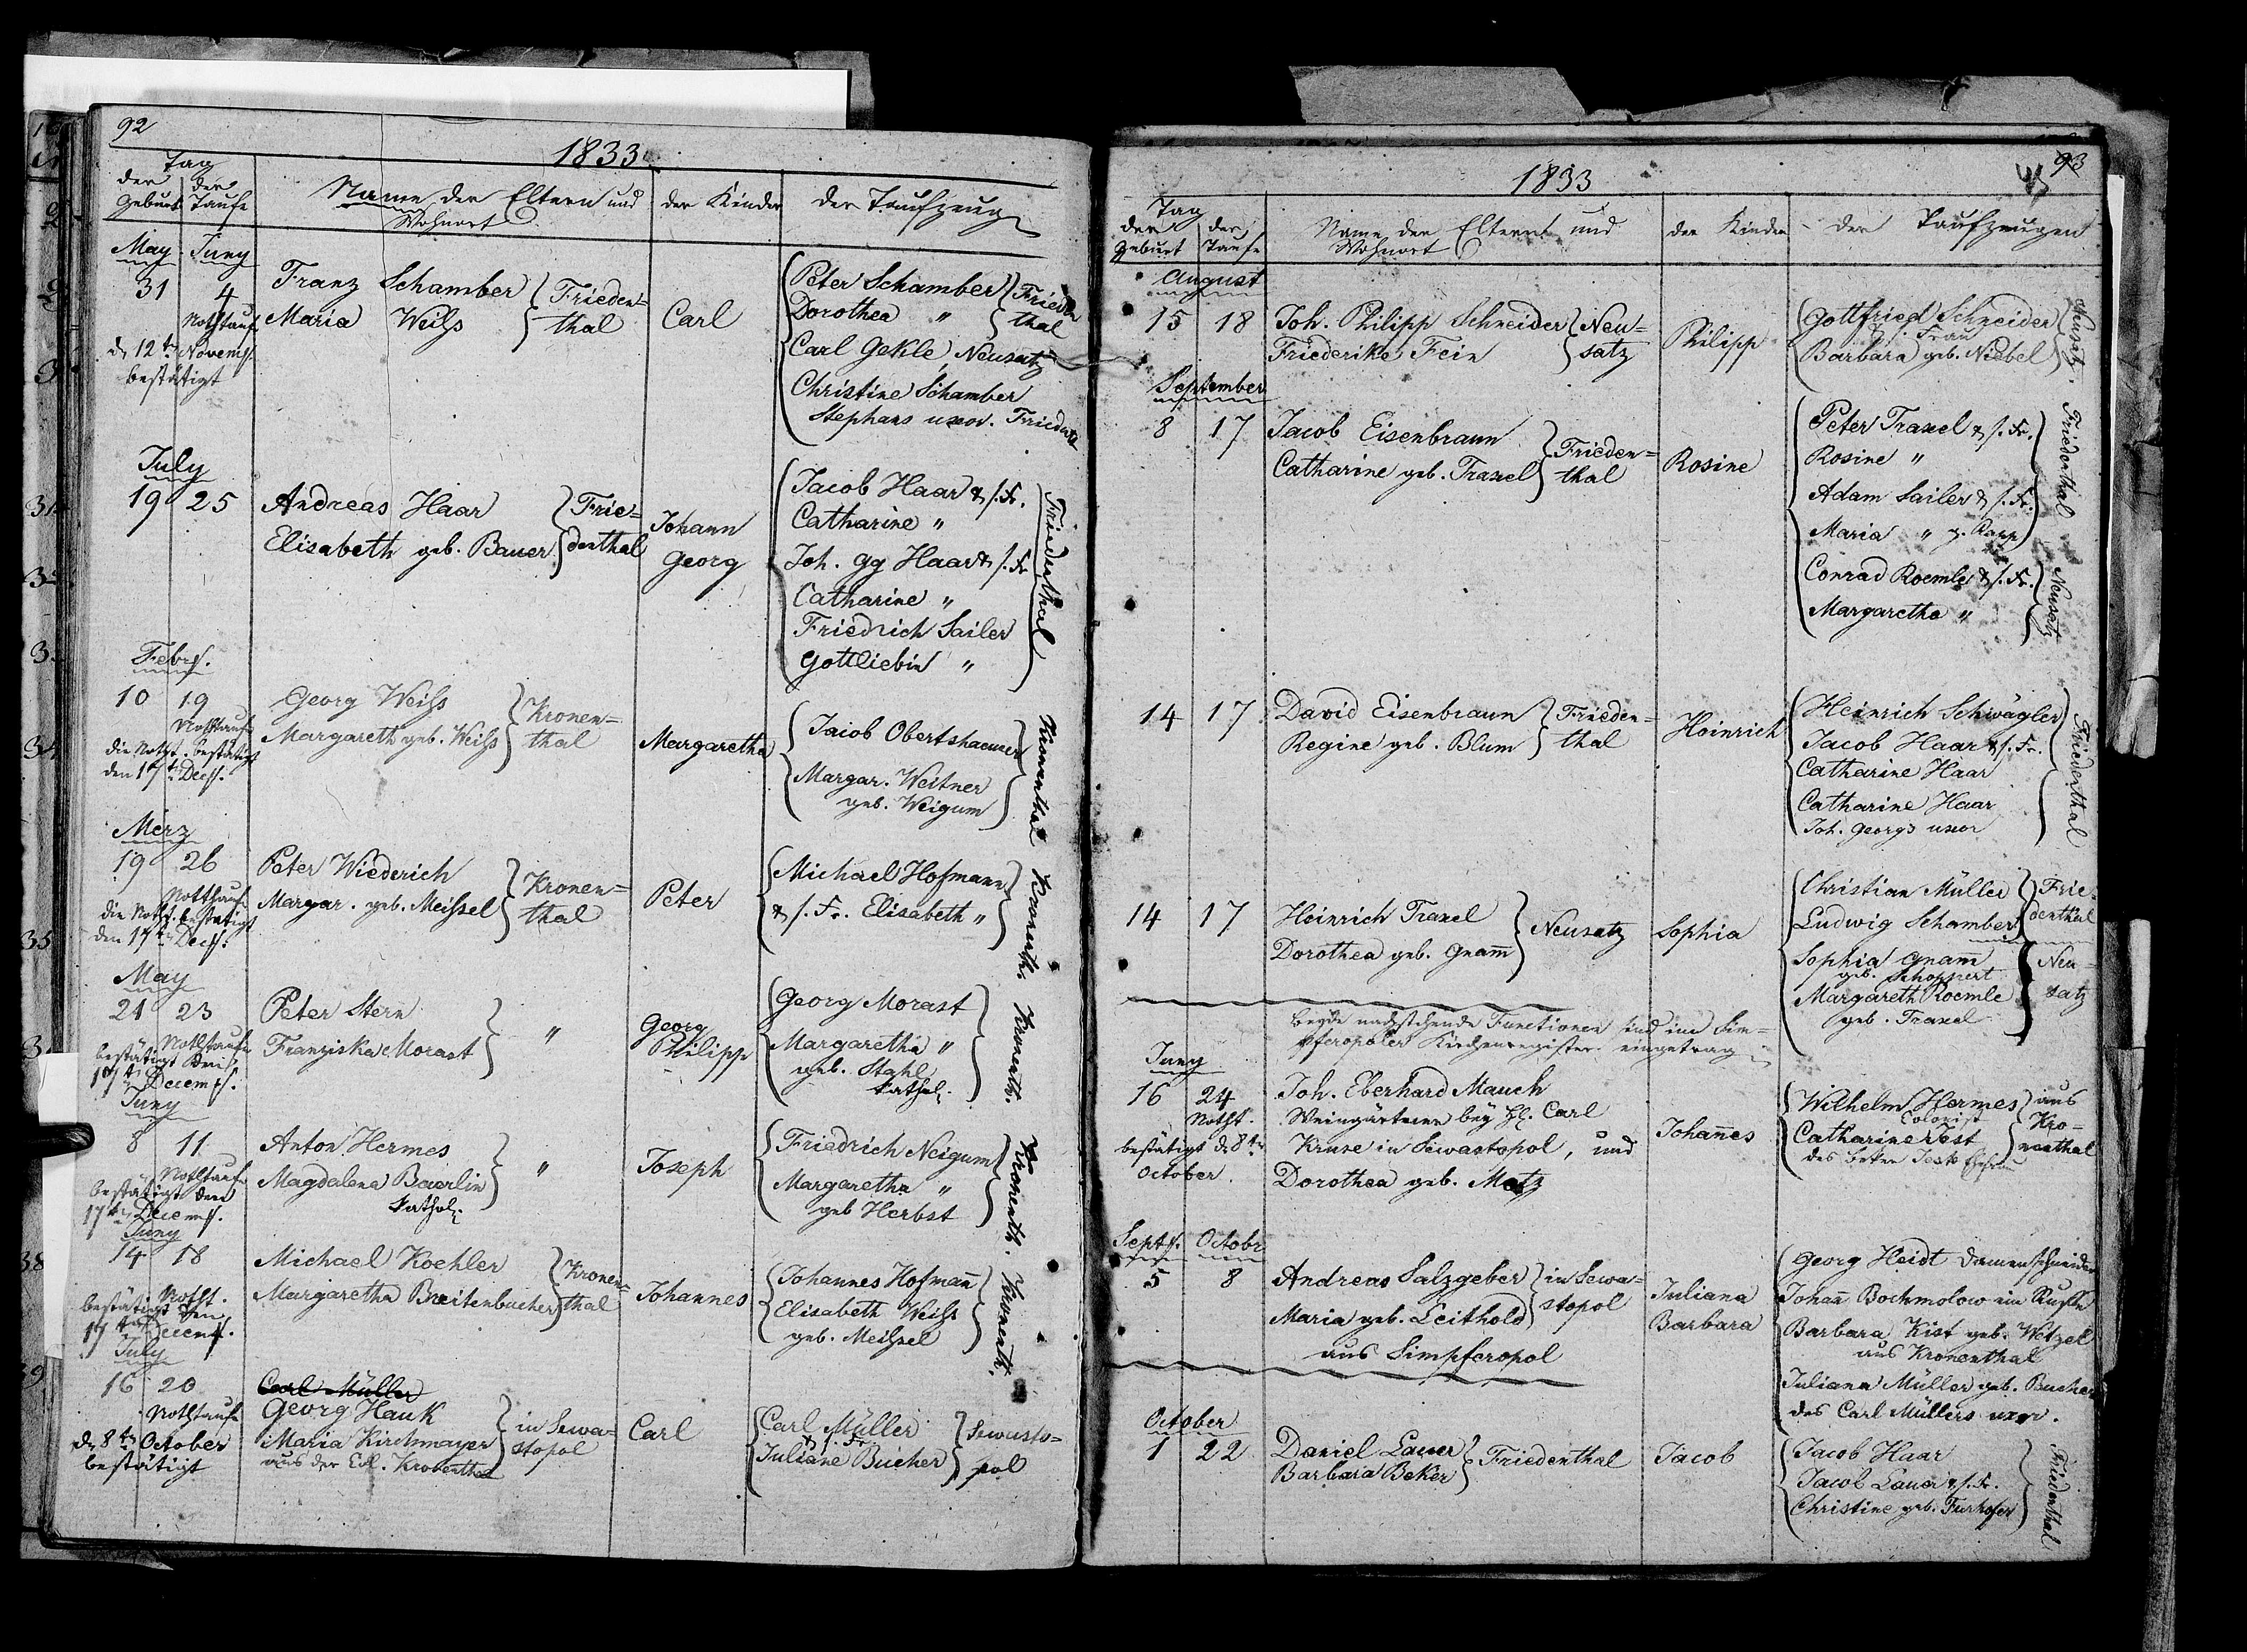 92
1833.
Tag
der der
Geburt Taufe
Name der Eltern und
Wohnort
der Kinder
der Taufzeugen
May Juny
31 4
Nothtauf
d 12ten Novemb.
bestätigt
Franz Schamber
Maria Weihs
Frieden=
thal
Carl
Peter Schamber
Dorothea "
Frieden
thal
Carl Gekle, Neusatz
Christine Schamber
Stephans uxor.
July
19 25
Andreas Haar
Elisabeth geb. Bauer
Frie=
denthal
Johann
Georg
Jacob Haar & s. Fr.
Catharine "
Joh. Gg Haar & s. Fr
Catharine "
Friedrich Sailer
Gottliebin "
Friedenthal
Febr.
10 19
Nothtaufe
die Notht. bestätigt
den 17t Dec.
Georg Weihs
Margareth geb. Weihs
Kronen=
thal
Margaretha
Jacob
Margar. Weitner
geb. Weigum
Kronenthal
Merz
19 26
Notthaufe
die Notht. bestätigt
den 17t Dec.
Peter Wiederich
Margar. geb. Meihsel
Kronen=
thal
Peter
Michael Hofmann
& s. Fr. Elisabeth "
Kronenth.
May
21 23
Nothtaufe
bestätigt den
17t Decemb.
Peter Stern
Franziska Morast
"
Georg
Philipp
Georg Morast
Margaretha "
geb. Stahl
kathol.
Kronenth.
Juny
8 11
Nothtaufe
bestätigt den
17ten Decemb.
Anton Hermes
Magdalena Baerlin
kathol.
"
Joseph
Friedrich Neigum
Margaretha "
geb Herbst
Kronenth.
Juny
14 18
Notht.
bestätigt den
17ten Decemb.
Michael Koehler
Margaretha Breitenbucher
Kronen=
thal
Johannes
Johannes Hofmañ
Elisabeth Weihs
geb. Meihsel
Kronenth.
July
16 20
Nothtaufe
d 8ten October
bestätigt
Carl Müller
Georg Hauk
Maria Kirchmayer
aus der Col. Kronenthal
in Sewa=
stopol
Carl
Carl Müller
& s. Fr
Juliane Bucher
Sewasto=
pol
93
1833
Tag
der der
Geburt Taufe
Name der Eltern und
Wohnort
der Kinder
der Taufzeugen
August
15 18
Joh. Philipp Schneider
Friederike Fein
Neu=
satz
Philipp
Gottfried Schneider
Frau
Barbara geb. Niebel
Neusatz.
September
8 17
Jacob Eisenbraun
Catharine geb. Traxel
Frieden=
thal
Rosine
Peter Traxel & s. Fr.
Rosine "
Adam Sailer & s. Fr.
Maria " g. Rapp
Friedenthal
Conrad Roemle & s. Fr.
Margaretha "
Neusatz
14 17
David Eisenbraun
Regine geb. Blum
Frieden=
thal
Heinrich
Heinrich Schwägler
Jacob Haar & s. Fr.
Catharine Haar
Catharine Haar
Joh. Georgs uxor
Friedenthal
14 17
Heinrich Traxel
Dorothea geb. Gnam̄
Neusatz
Sophia
Christian Müller
Ludwig Schamber
Frie=
denthal
Sophia Gnam
geb. Schoppert
Margareth Roemle
geb. Traxel
Neu=
satz
beyde nachstehende Functionen sind im Sim=
pferopoler Kirchenregister eingetrag
Juny
16 24
Notht.
bestätigt d 8ten
October.
Joh. Eberhard Mauch
Weingärtner bey H. Carl
Kruse in Sewastopol, und
Dorothea geb. Metz
Johan̄es
Wilhelm Hermes
Colonist
Catharine Jest
des Jests Ehefrau
aus
Kro=
nenthal
Septb. Octobr
5 8
Andreas Salzgeber
Maria geb. Leithold
aus Simpferopol
in Sewa=
stopol
Juliana
Barbara
Georg Heidt Damenschneider
Johañ Bochmolow ein Ruhse
Barbara Kist geb. Wetzel
aus Kronenthal
Juliana Müller geb. Bucher
des Carl Müllers uxor.
October
1 22
Daniel Lauer
Barbara Beker
Friedenthal
Jacob
Jacob Haar
Jacob Lauer & s. Fr.
Christine geb. Furhofer
Friedenthal